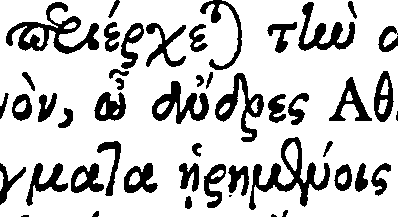 περιέρχεται τὴν
νὸν, ὦ ἄνδρες Ἀθ
γματα ἡρημένοις